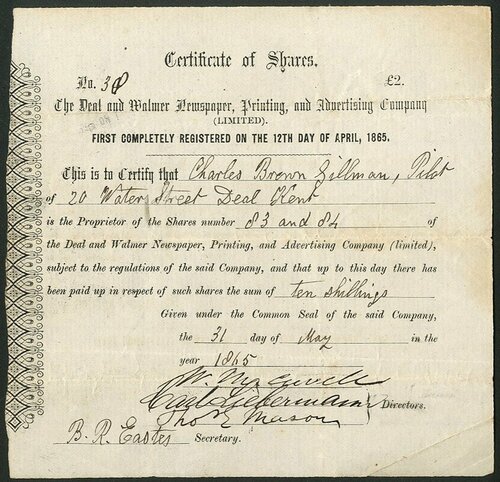 Certificate of Shares.
No. 38 £2.
The Deal and Walmer Newspaper, Printing, and Advertising Company
(LIMITED).
FIRST COMPLETELY REGISTERED ON THE 12TH DAY OF APRIL, 1865.
This is to Certify that Charles Brown Gillman, Pilot
of 20 Water Street Deal Kent
is the Proprietor of the Shares number 83 and 84 of
the Deal and Walmer Newspaper, Printing, and Advertising Company (limited),
subject to the regulations of the said Company, and that up to this day there has
been paid up in respect of such shares the sum of ten shillings
Given under the Common Seal of the said Company,
the 31 day of May in the
year 1865
W.
Carl Liebermann Directors.
Thos E Mason
B. R. Eastes Secretary.